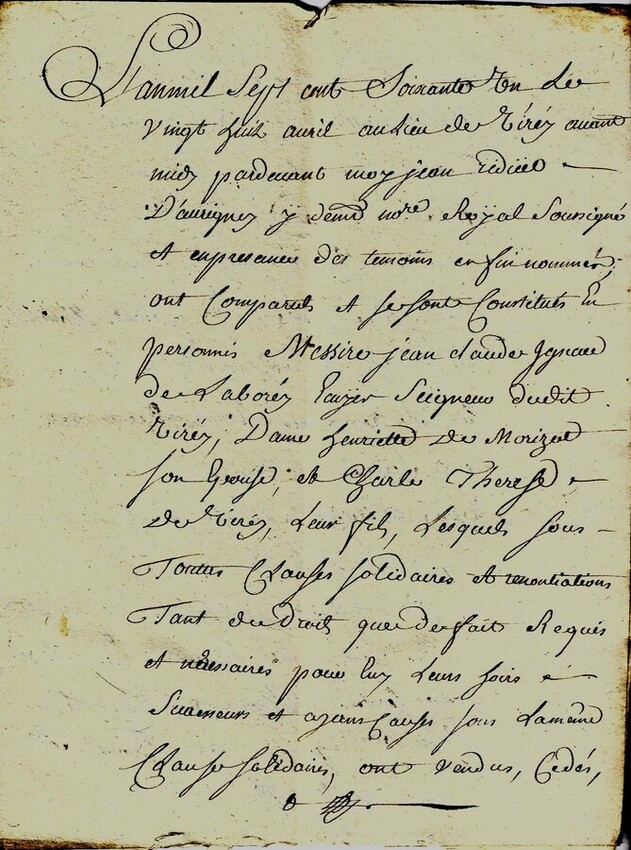 L'anmil Sept cent Soixante Un Le
vingt huit avril aulieu de Virey avant
midy pardevant moy jean
D'aurigney y demt nore Royal Soussigné
et enpresance des temoins en fin nommés,
ont Comparus et se sont Constitués En
personnes Messire jean claude Ignace
de Laborey Ecuyer Seigneur dudit
Virey, Dame henriette de
son Epouise, et Charle Therese
de Virey, Leur fils, Lesquels sous
Toutes Clauses solidaires et renontiations
Tant de Droit que de fait Requis
et nécessaires pour Eux Leurs hoirs et
Successeurs et ayans Causes sous Lamême
Clause solidaires, ont vendus, Cedés,